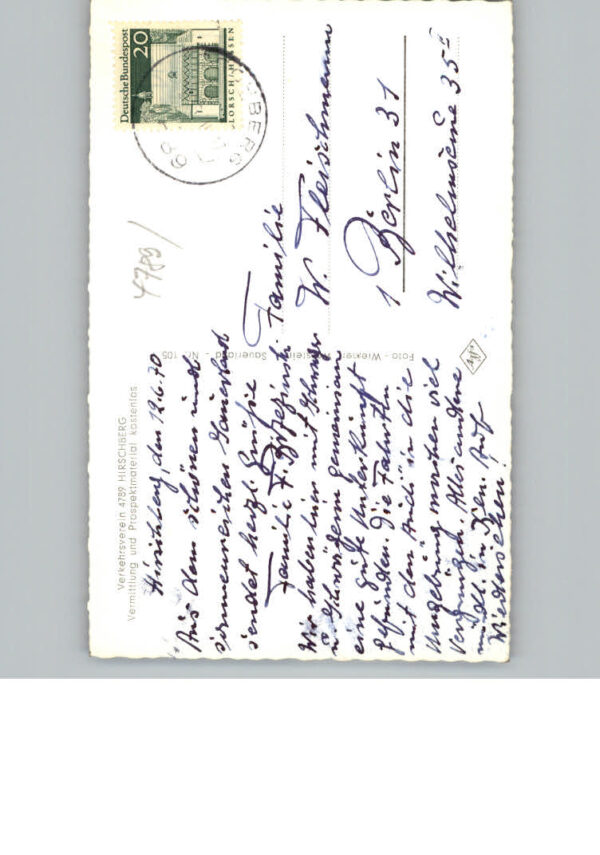 Verkehrsverein 4789 HIRSCHBERG
Vermittlung und Prospektmaterial kostenlos
Hirschberg, den 12.6.70
Aus dem schönen und
sommerlichen Sauerland
sendet herzl. Grüße
Familie F.
Wir haben hier mit Schwager
u. Schwägerin gemeinsam
eine gute Unterkunft
gefunden. Die Fahrten
mit dem Audi in die
Umgebung machen viel
Vergnügen. Alles andere
mdl. in Bln. Auf
Wiedersehen!
Foto - Sauerland - Nr. 105
4789/
Deutsche Bundespost
20
LORSCH/HESSEN
BERG
Familie
W. Fleischmann
1 Berlin 31
Wilhelmsaue 35 I